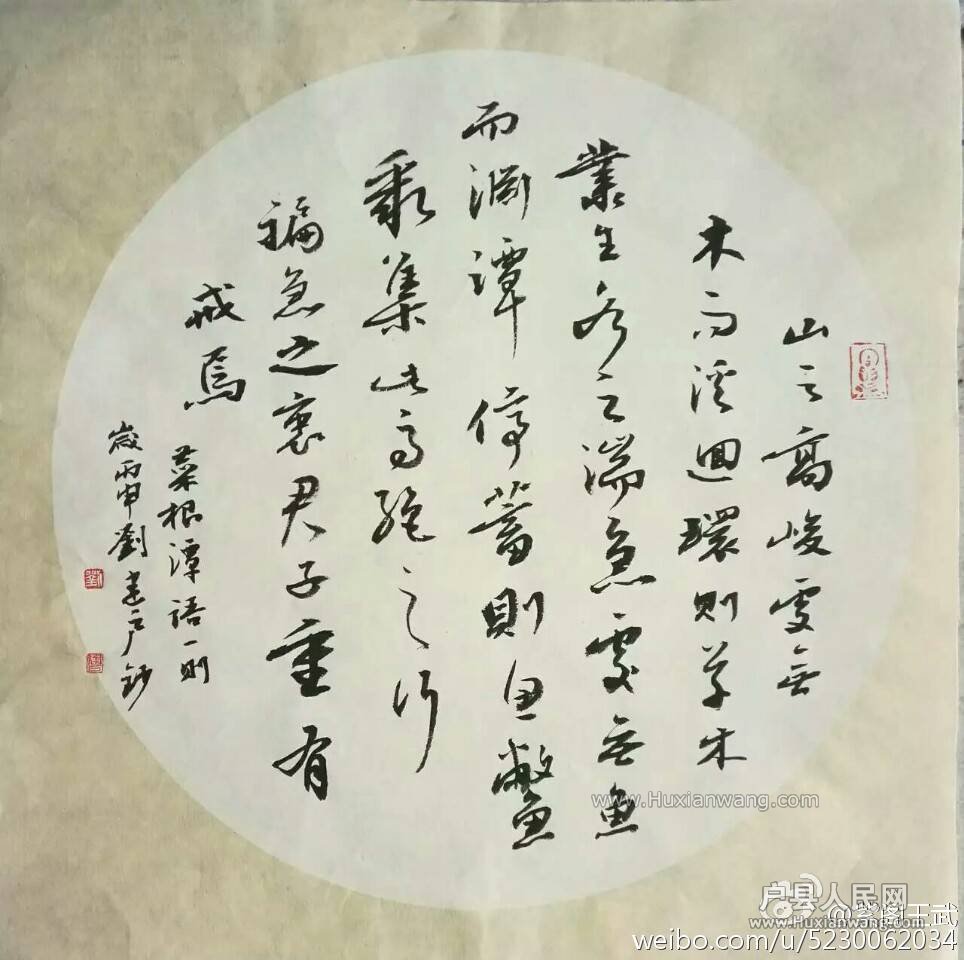 山之高峻處無
木而溪迴環則草木
叢生水之湍急處無魚
而淵潭停蓄則魚鱉
聚集此高絕之行
褊急之衷君子重有
戒焉
菜根潭語一則
歲丙申劉建戶鈔
劉
www.Huxianwang.com
户县人民网
www.Huxianwang.com
weibo.com/u/5230062034